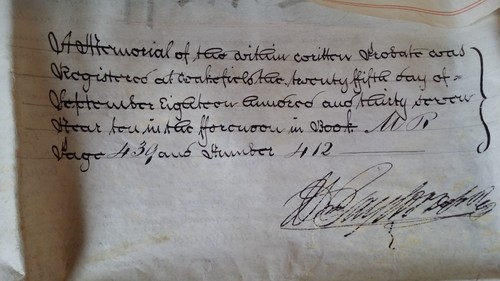 A Memorial of the within written Probate was
Registered at Wakefield the twenty fifth day of
September Eighteen hundred and thirty seven
Near ten in the fforenoon in Book M R
Page 439 and Number 412